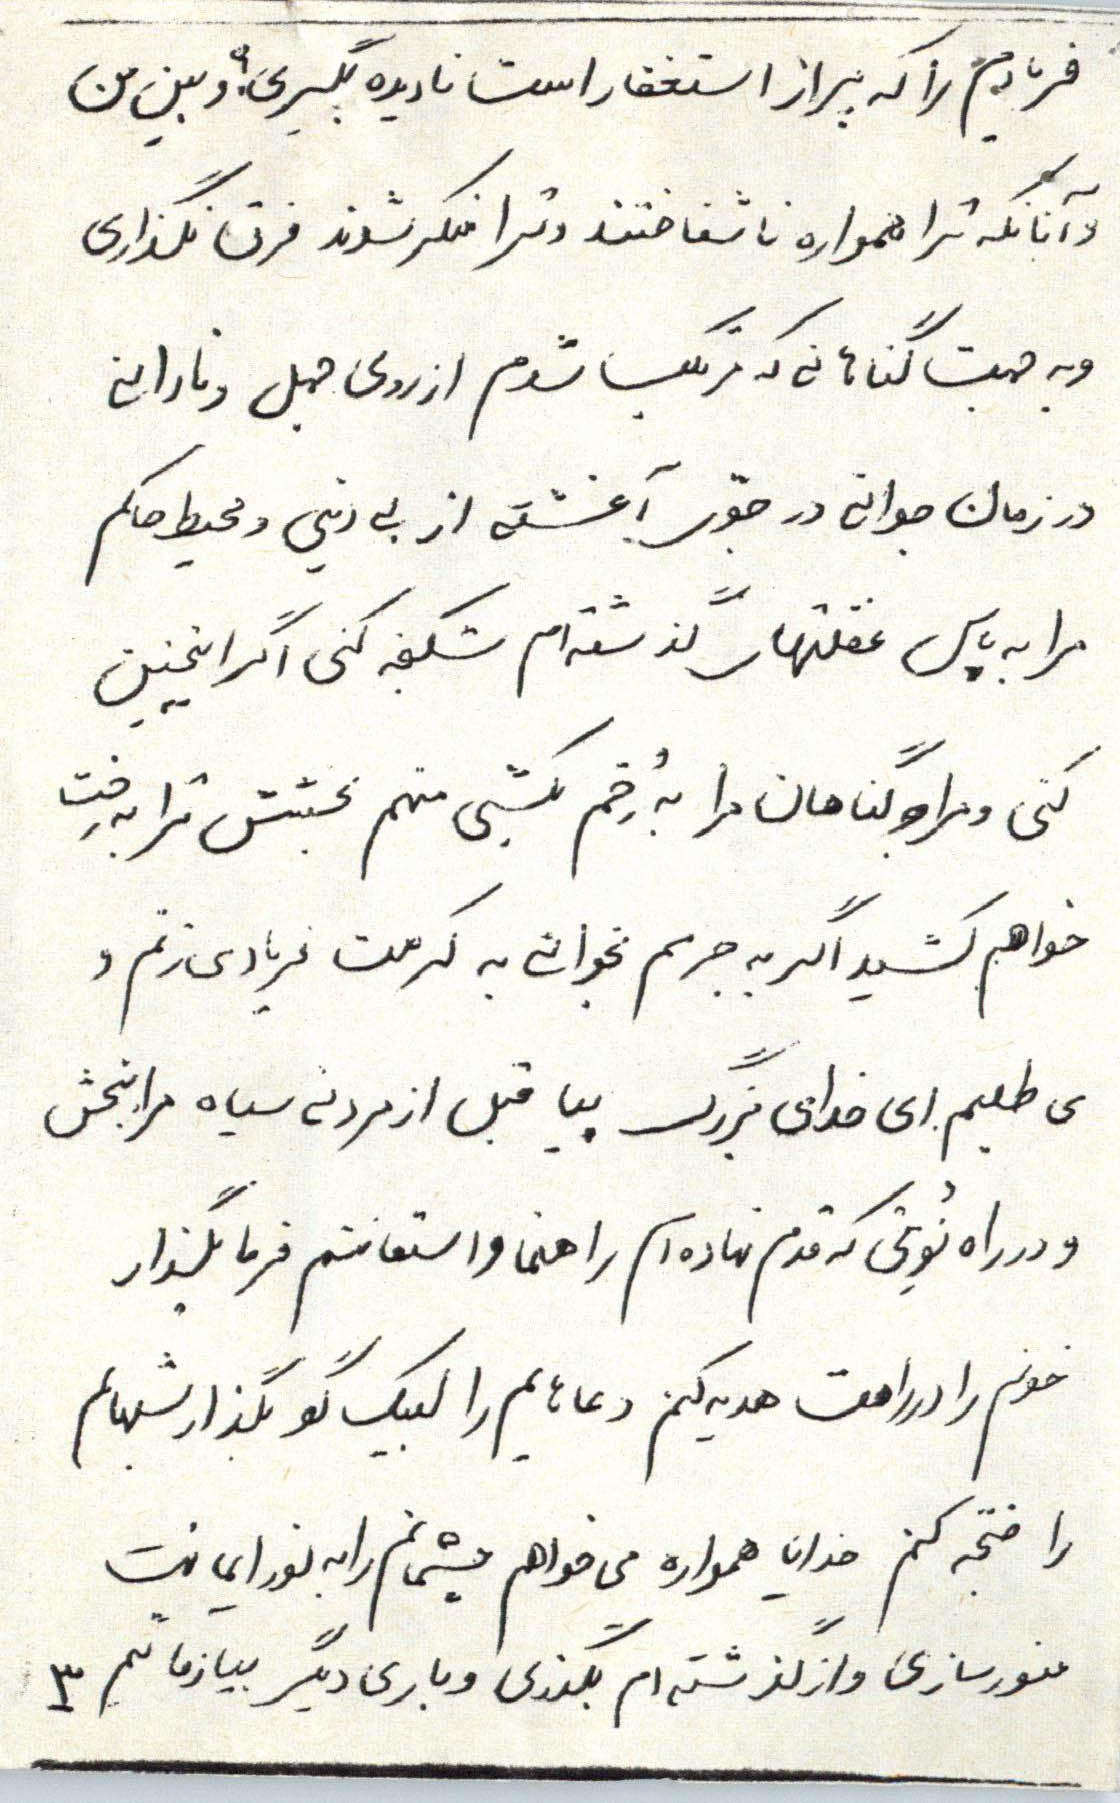 فریادم را که پر از استغفار است نادیده بگیری؟ و بین من
و آنانکه ترا همواره ناشناختند و ترا منکر شدند فرق نگذاری
و به جهت گناهانی که مرتکب شدم از روی جهل و نادانی
در زمان جوانی در جوی آغشته از بی دینی و محیط حاکم
مرا به پاس غفلتهای گذشته ام شکنجه کنی اگر اینچنین
کنی و مرا گناهان مرا به رُخم بکشی منهم بخشش ترا به رخت
خواهم کشید اگر به جرمم بخوانی به کرمت فریادی زنم و
می طلبم ای خدای بزرگ بیا قبل از مردنی سیاه مرا ببخش
و در راه نُوئی که قدم نهاده ام راهنما و استعانتم فرما بگذار
خونم را در راهت هدیه کنم دعاهایم را لبیک گو بگذار شبهایم
را ضجه کنم خدایا همواره می خواهم چشمانم را به نور ایمانت
منور سازی و از گذشته ام بگذری و باری دیگر بیازمائیم ۳